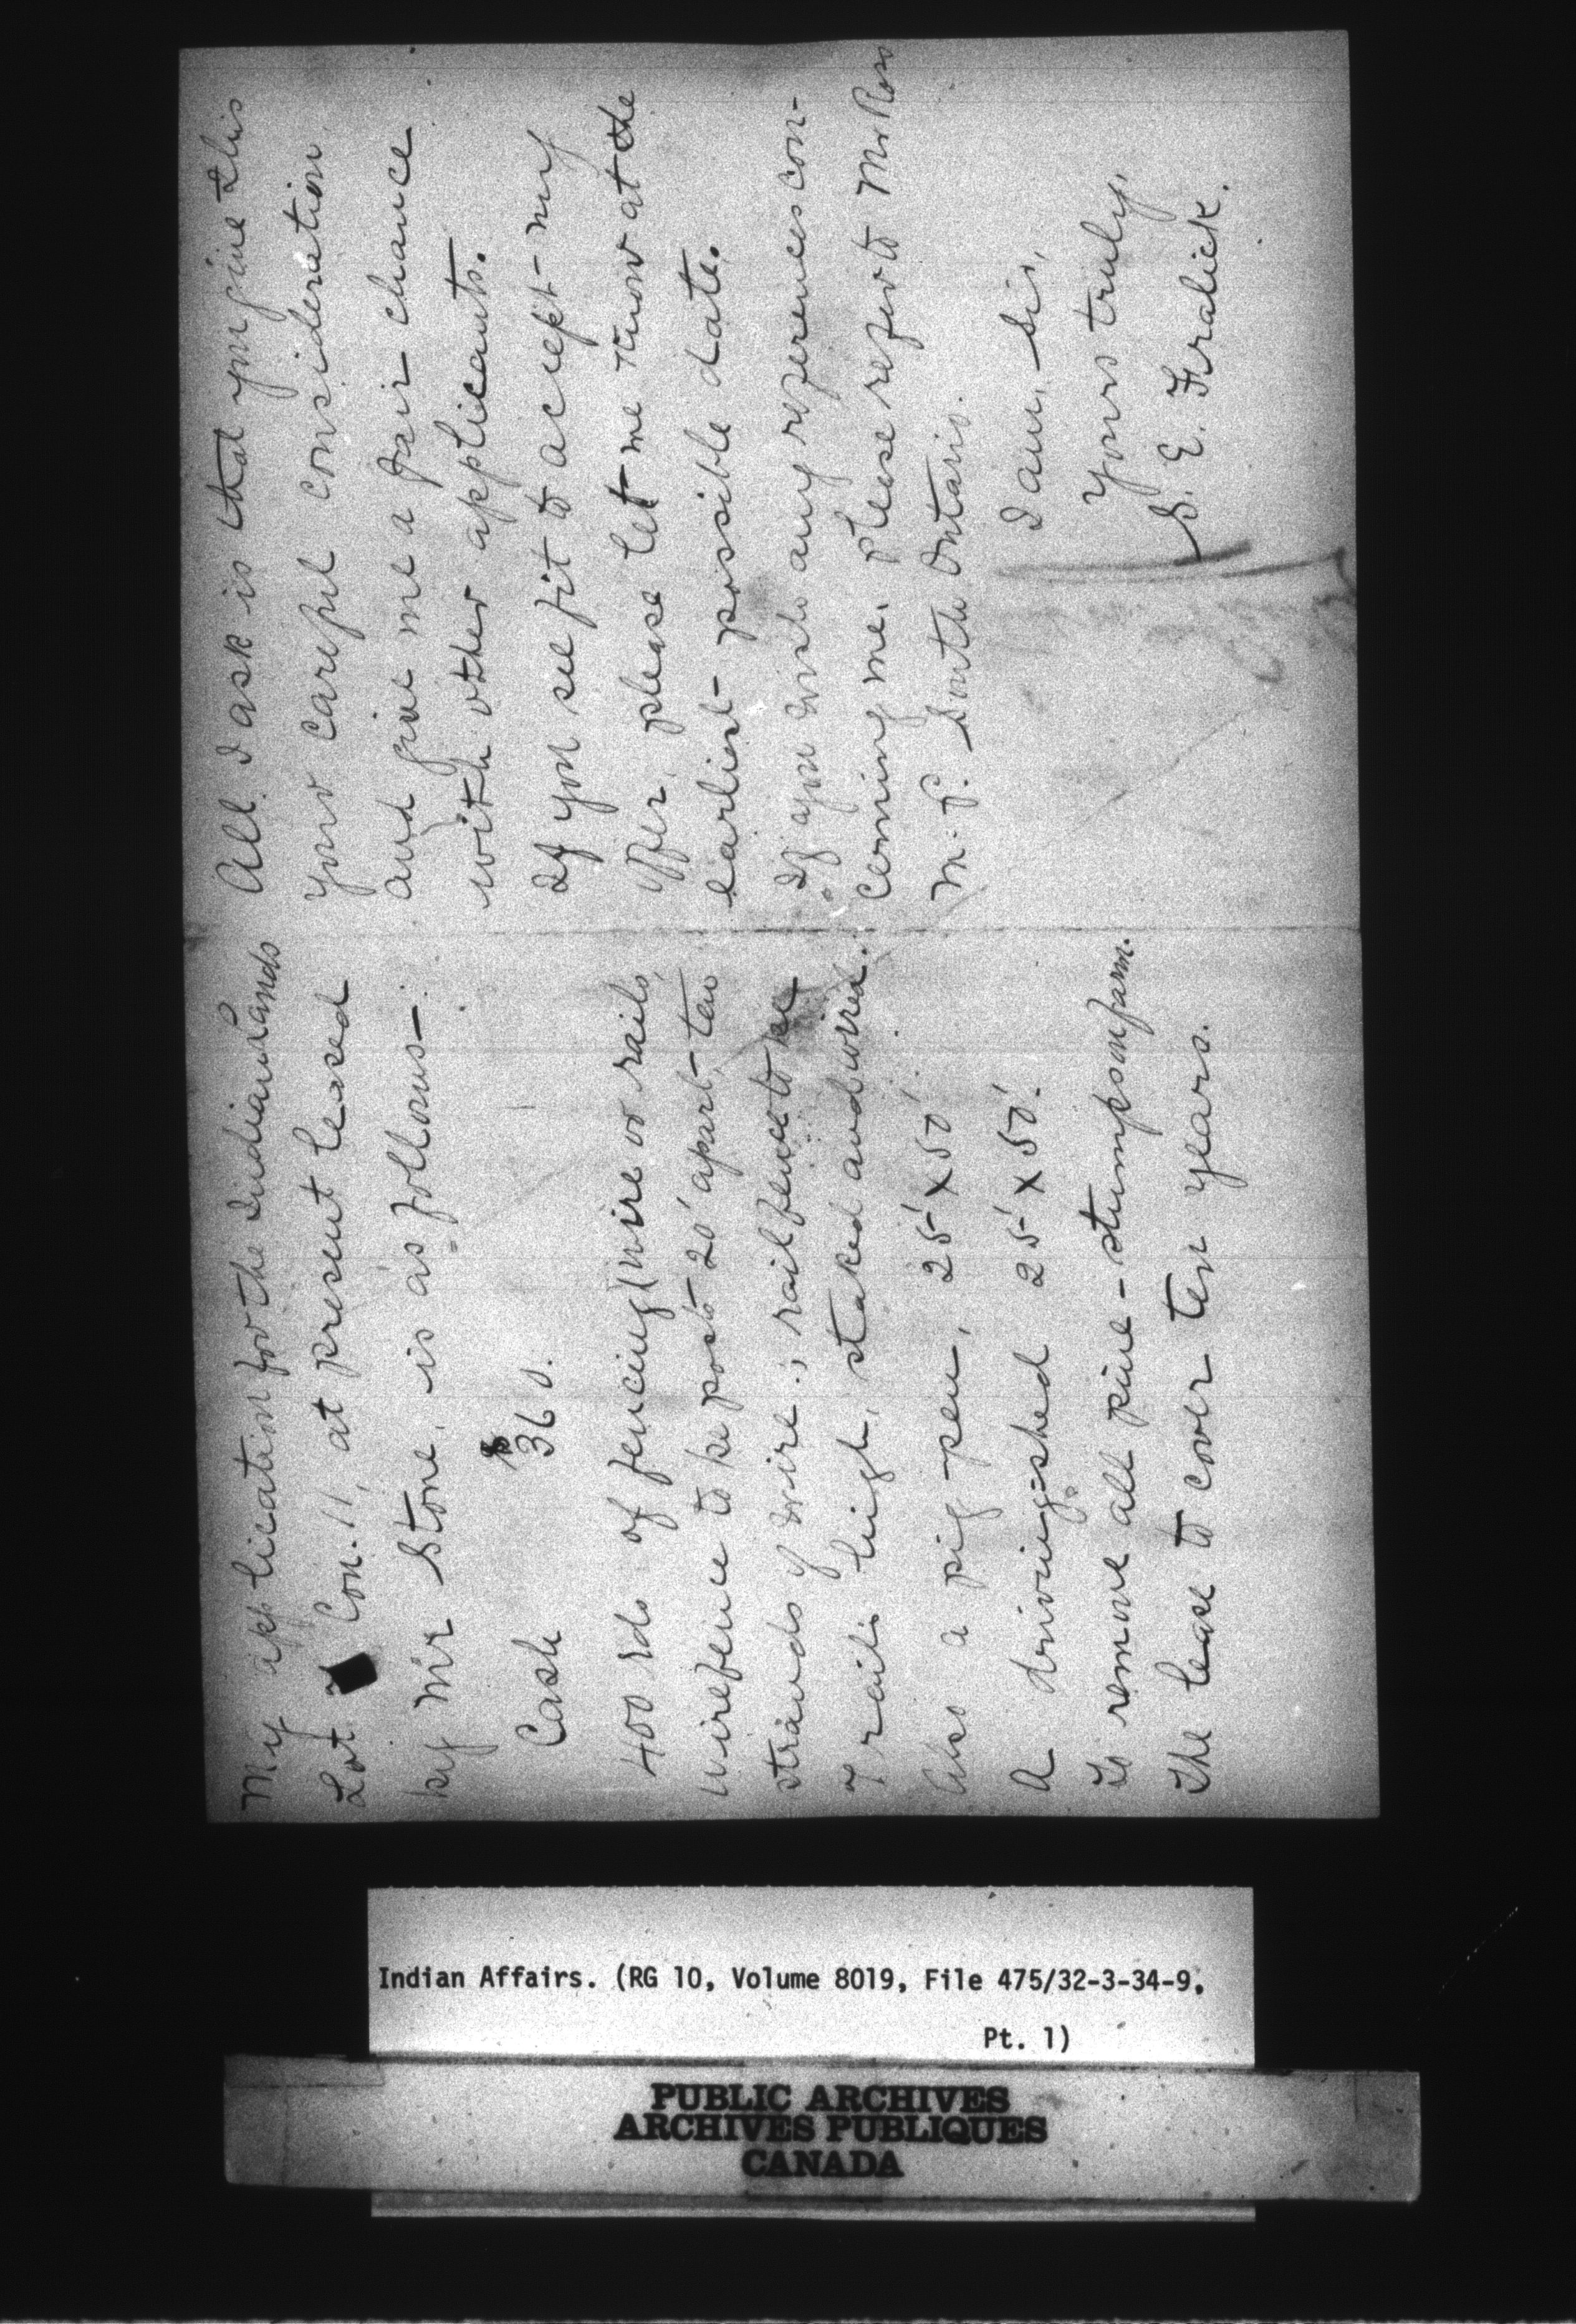 My application for the Indian Lands
Lot Con. 11, at present leased
by Mr Stone, is as follows—
Cash $360.
400 rds of fencing (wire or rails,
wirefence to be posts 20' apart—ten
strands of wire; rail fence to be
7 rails high, staked and wired.
Also a pig-pen, 25' x 50'.
A driving-shed 25' x 50'.
To remove all pine-stumps on farm.
The lease to cover ten years.
All I ask is that you give this
your careful consideration
and give me a fair chance
with other applicants.
If you see fit to accept my
offer, please let me know at the
earliest possible date.
If you wish any references con-
cerning me, please refer to Mr Ross
M.P. South Ontario.
I am, Sir,
Yours truly,
S. E. Fralick.
Indian Affairs. (RG 10, Volume 8019, File 475/32-3-34-9,
Pt. 1)
PUBLIC ARCHIVES
ARCHIVES PUBLIQUES
CANADA